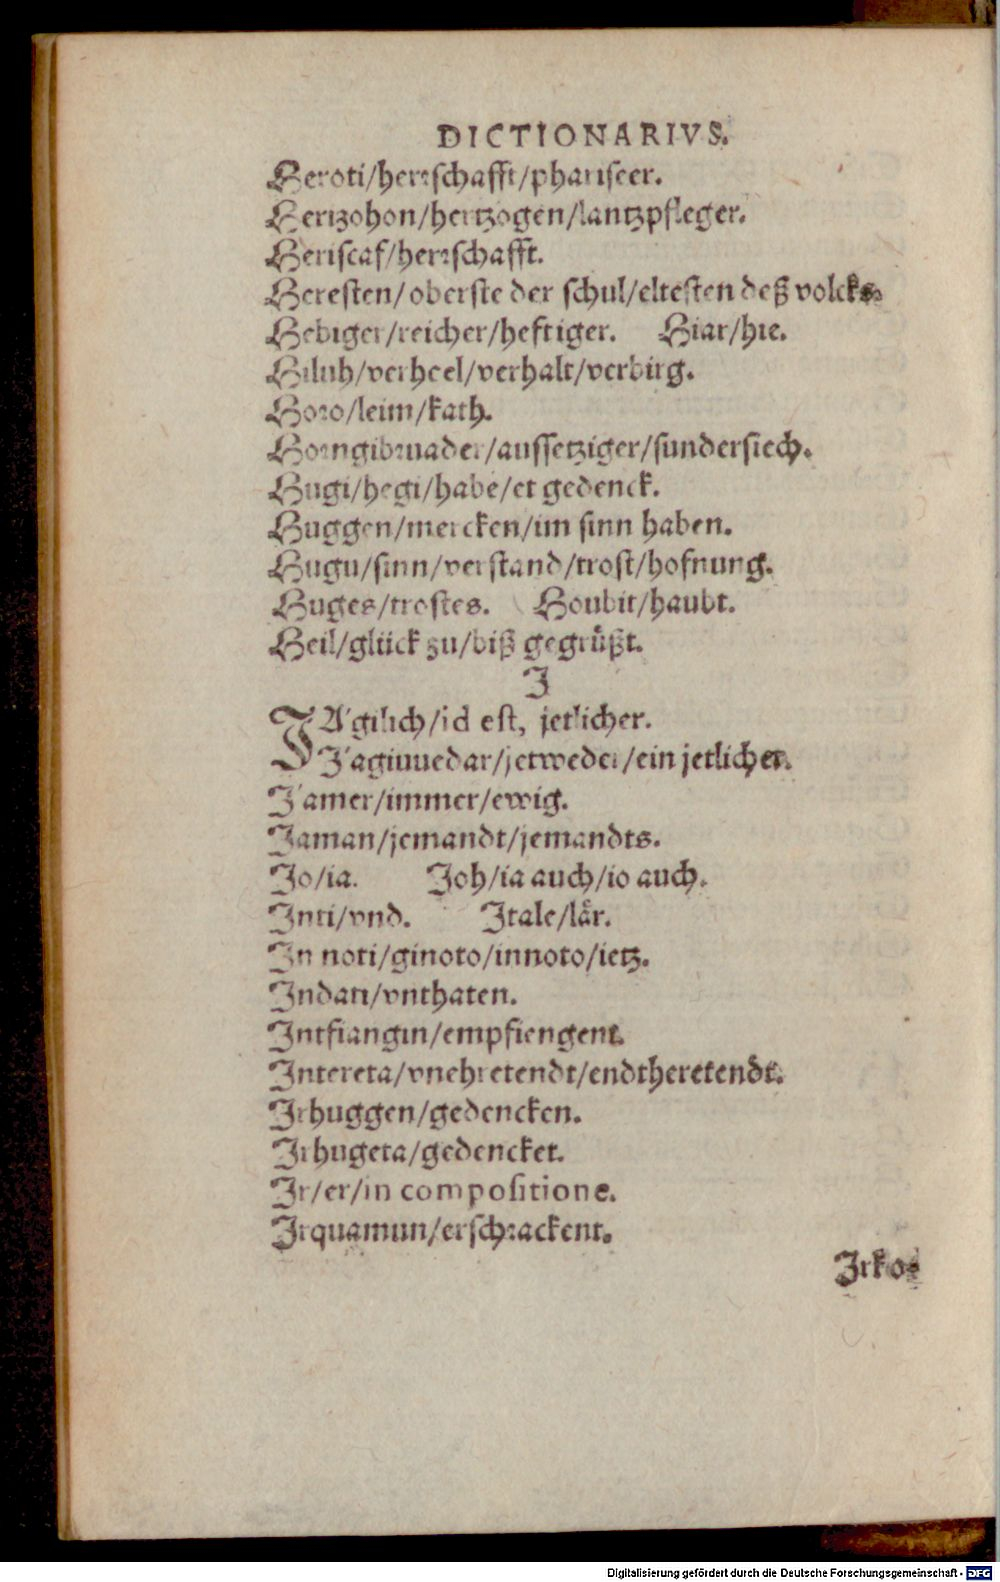 DICTIONARIVS.
Heroti/herrschafft/phariseer.
Hertzohon/hertzogen/lantzpfleger.
Heriscaf/herrschafft.
Heresten/oberste der schul/eltesten deß volcks.
Hebiger/reicher/heftiger. Hiar/hie.
Hiluh/verheel/verhalt/verbirg.
Horo/leim/kath.
Horngibruader/aussetziger/sundersiech.
Hugi/hegi/habe/et gedenck.
Huggen/mercken/im sinn haben.
Hugu/sinn/verstand/trost/hofnung.
Huges/trostes. Houbit/haubt.
Heil/glück zu/biß gegrüßt.
J
JAgilich/id est, jetlicher.
Jagiuuedar/jetweder/ein jetlicher.
Jamer/immer/ewig.
Jaman/jemandt/jemandts.
Jo/ia. Joh/ia auch/io auch.
Inti/vnd. Itale/lär.
In noti/ginoto/innoto/ietz.
Indati/vnthaten.
Intfiangin/empfiengent.
Intereta/vnehretendt/endtheretendt.
Irhuggen/gedencken.
Irhugeta/gedencket.
Ir/er/in compositione.
Irquamun/erschrackent.
Irko=
Digitalisierung gefördert durch die Deutsche Forschungsgemeinschaft - DFG